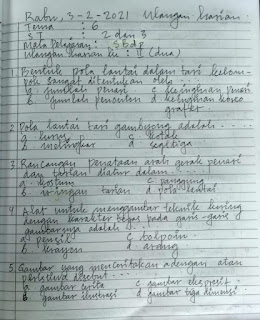 Rabu, 3-2-2021 Ulangan harian.
Tema : 6
ST : 2 dan 3
Mata Pelajaran : SBdp
Ulangan harian ke : II (dua)
1. Bentuk pola lantai dalam tari kelom-
pok sangat ditentukan oleh ...
a. jumlah penari c keinginan penari
b. jumlah penonton d keinginan koreo
grafer
2. Pola lantai tari gambyong adalah ...
a. kursif c. kotak
b. melingkar d segitiga
3. Rancangan penataan arah gerak penari
dan tarian diatur dalam ...
a. kostum c panggung
b. iringan tarian d pola lantai
4. Alat untuk menggambar teknik kering
dengan karakter tegas pada garis-garis
gambarnya adalah ...
a. pensil c. bolpoin
b. krayon d arang
5. Gambar yang menceritakan adegan atau
peristiwa disebut ...
a gambar cerita c gambar ekspresif
b. gambar ilustrasi d gambar tiga dimensi